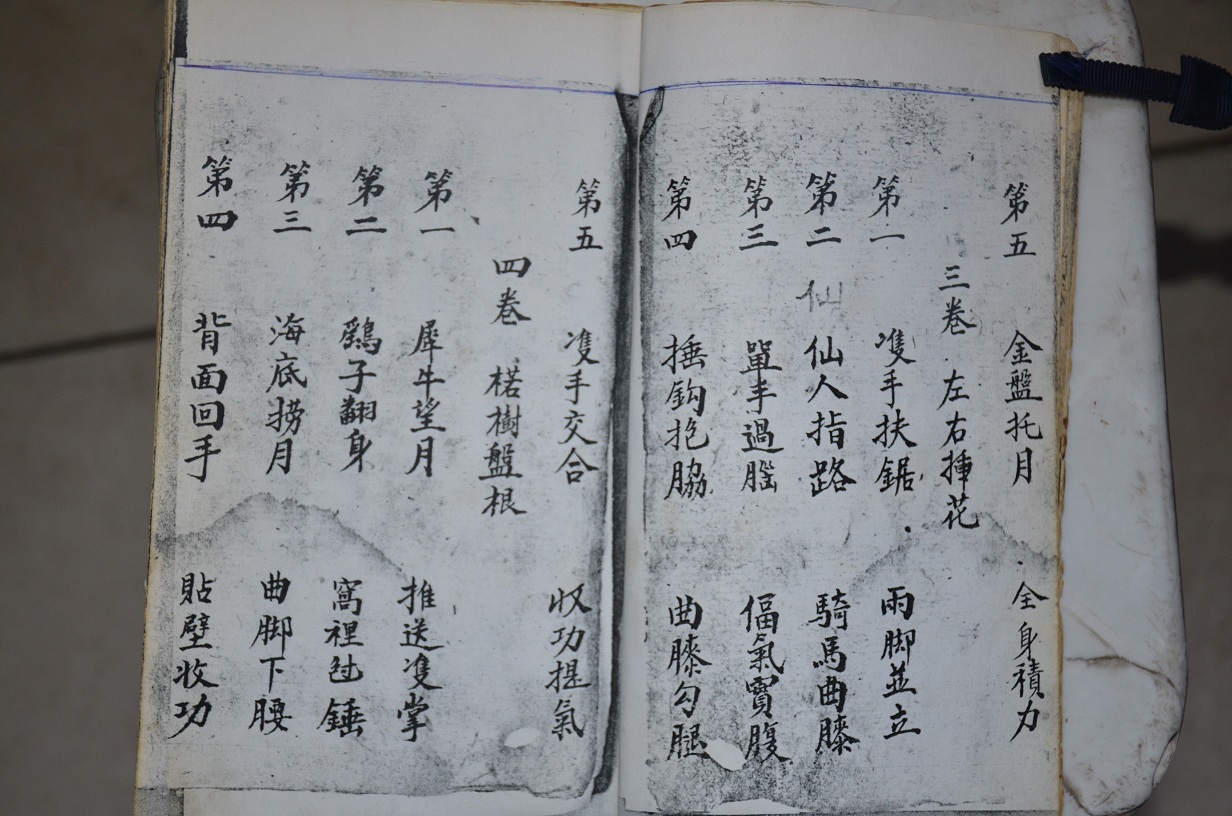 第五 金盤托月 全身積力
三卷 左右揷花
第一 隻手扶鋸 兩脚並立
仙
第二 仙人指路 騎馬曲膝
第三 單手過腦 偪氣實腹
第四 捶鈎抱脇 曲膝勾腿
第五 隻手交合 收功提氣
四卷 楉樹盤根
第一 犀牛望月 推送隻掌
第二 鷂子翻身 窩裡 錘
第三 海底撈月 曲脚下腰
第四 背面回手 貼壁收功